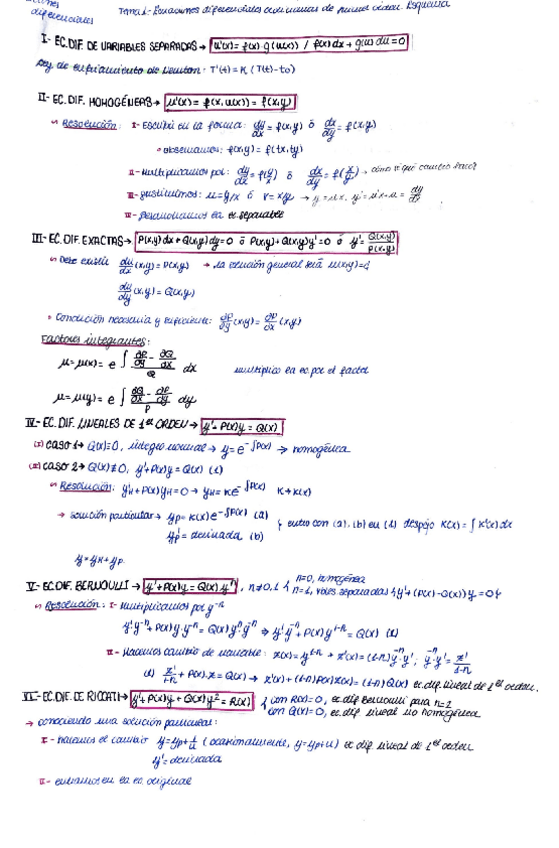 diferenciales
Tema 1- Ecuaciones diferenciales ordinarias de primer orden. Esquema
I- EC. DIF. DE VARIABLES SEPARADAS → u'(x) = f(x)·g(u(x)) / f(x)dx + g(u)du = 0
Ley de enfriamiento de Newton: T'(t) = K (T(t) - to)
II- EC. DIF. HOMOGÉNEAS → u'(x) = f(x, u(x)) = f(x,y)
Resolución: I- Escribir en la forma: dy/dx = f(x,y) ó dx/dy = f(x,y)
observamos: f(x,y) = f(tx,ty)
II- Multiplicamos por: dy/dx = f(y/x) ó dx/dy = f(x/y) → cómo sé qué cambio hacer
III- Sustituimos: u = y/x ó v = x/y → y = u·x, y' = u'x + u = dy/dx
IV- Resolvemos la ec separable
III- EC. DIF. EXACTAS → P(x,y)dx + Q(x,y)dy = 0 ó P(x,y) + Q(x,y)y' = 0 ó y' = Q(x,y)/P(x,y)
Debe existir du/dx (x,y) = P(x,y) → la solución general será u(x,y) = c
du/dy (x,y) = Q(x,y)
Condición necesaria y suficiente: ∂P/∂y (x,y) = ∂Q/∂x (x,y)
Factores integrantes:
μ = μ(x) = e ∫ (∂P/∂y - ∂Q/∂x)/Q dx multiplico la ec por el factor
μ = μ(y) = e ∫ (∂Q/∂x - ∂P/∂y)/P dy
IV- EC. DIF. LINEALES DE 1er ORDEN → y' + P(x)y = Q(x)
(I) CASO 1 → Q(x) = 0, integro normal → y = e^-∫P(x) → homogénea
(II) CASO 2 → Q(x) ≠ 0, y' + P(x)y = Q(x) (1)
Resolución: y'H + P(x)yH = 0 → yH = Ke^-∫P(x) K → K(x)
→ solución particular → yp = K(x)e^-∫P(x) (a)
yp' = derivada (b) } entro con (a), (b) en (1) despejo K(x) = ∫K'(x)dx
y = yH + yp
V- EC. DIF. BERNOULLI → y' + P(x)y = Q(x)·y^n, n≠0,1 { n=0, homogénea
n=1, vbles separadas { y' + (P(x) - Q(x))y = 0 }
Resolución: I- Multiplicamos por y^-n
y'·y^-n + P(x)y·y^-n = Q(x)y^n·y^-n → y'·y^-n + P(x)y^1-n = Q(x) (1)
II- Hacemos cambio de variable: z(x) = y^1-n → z'(x) = (1-n)y^-n·y'; y^-n·y' = z'/(1-n)
(1) z'/(1-n) + P(x)·z = Q(x) → z'(x) + (1-n)P(x)z(x) = (1-n)Q(x) ec dif. lineal de 1er orden.
VI- EC. DIF. DE RICCATI → y' + P(x)y + Q(x)y² = R(x) { con R(x)=0, ec. dif Bernoulli para n=2
con Q(x)=0, ec dif lineal no homogénea
→ conociendo una solución particular:
I- hacemos el cambio y = yp + 1/u (ocasionalmente, y = yp + u) ec dif lineal de 1er orden
y' = derivada
II- entramos en la ec original